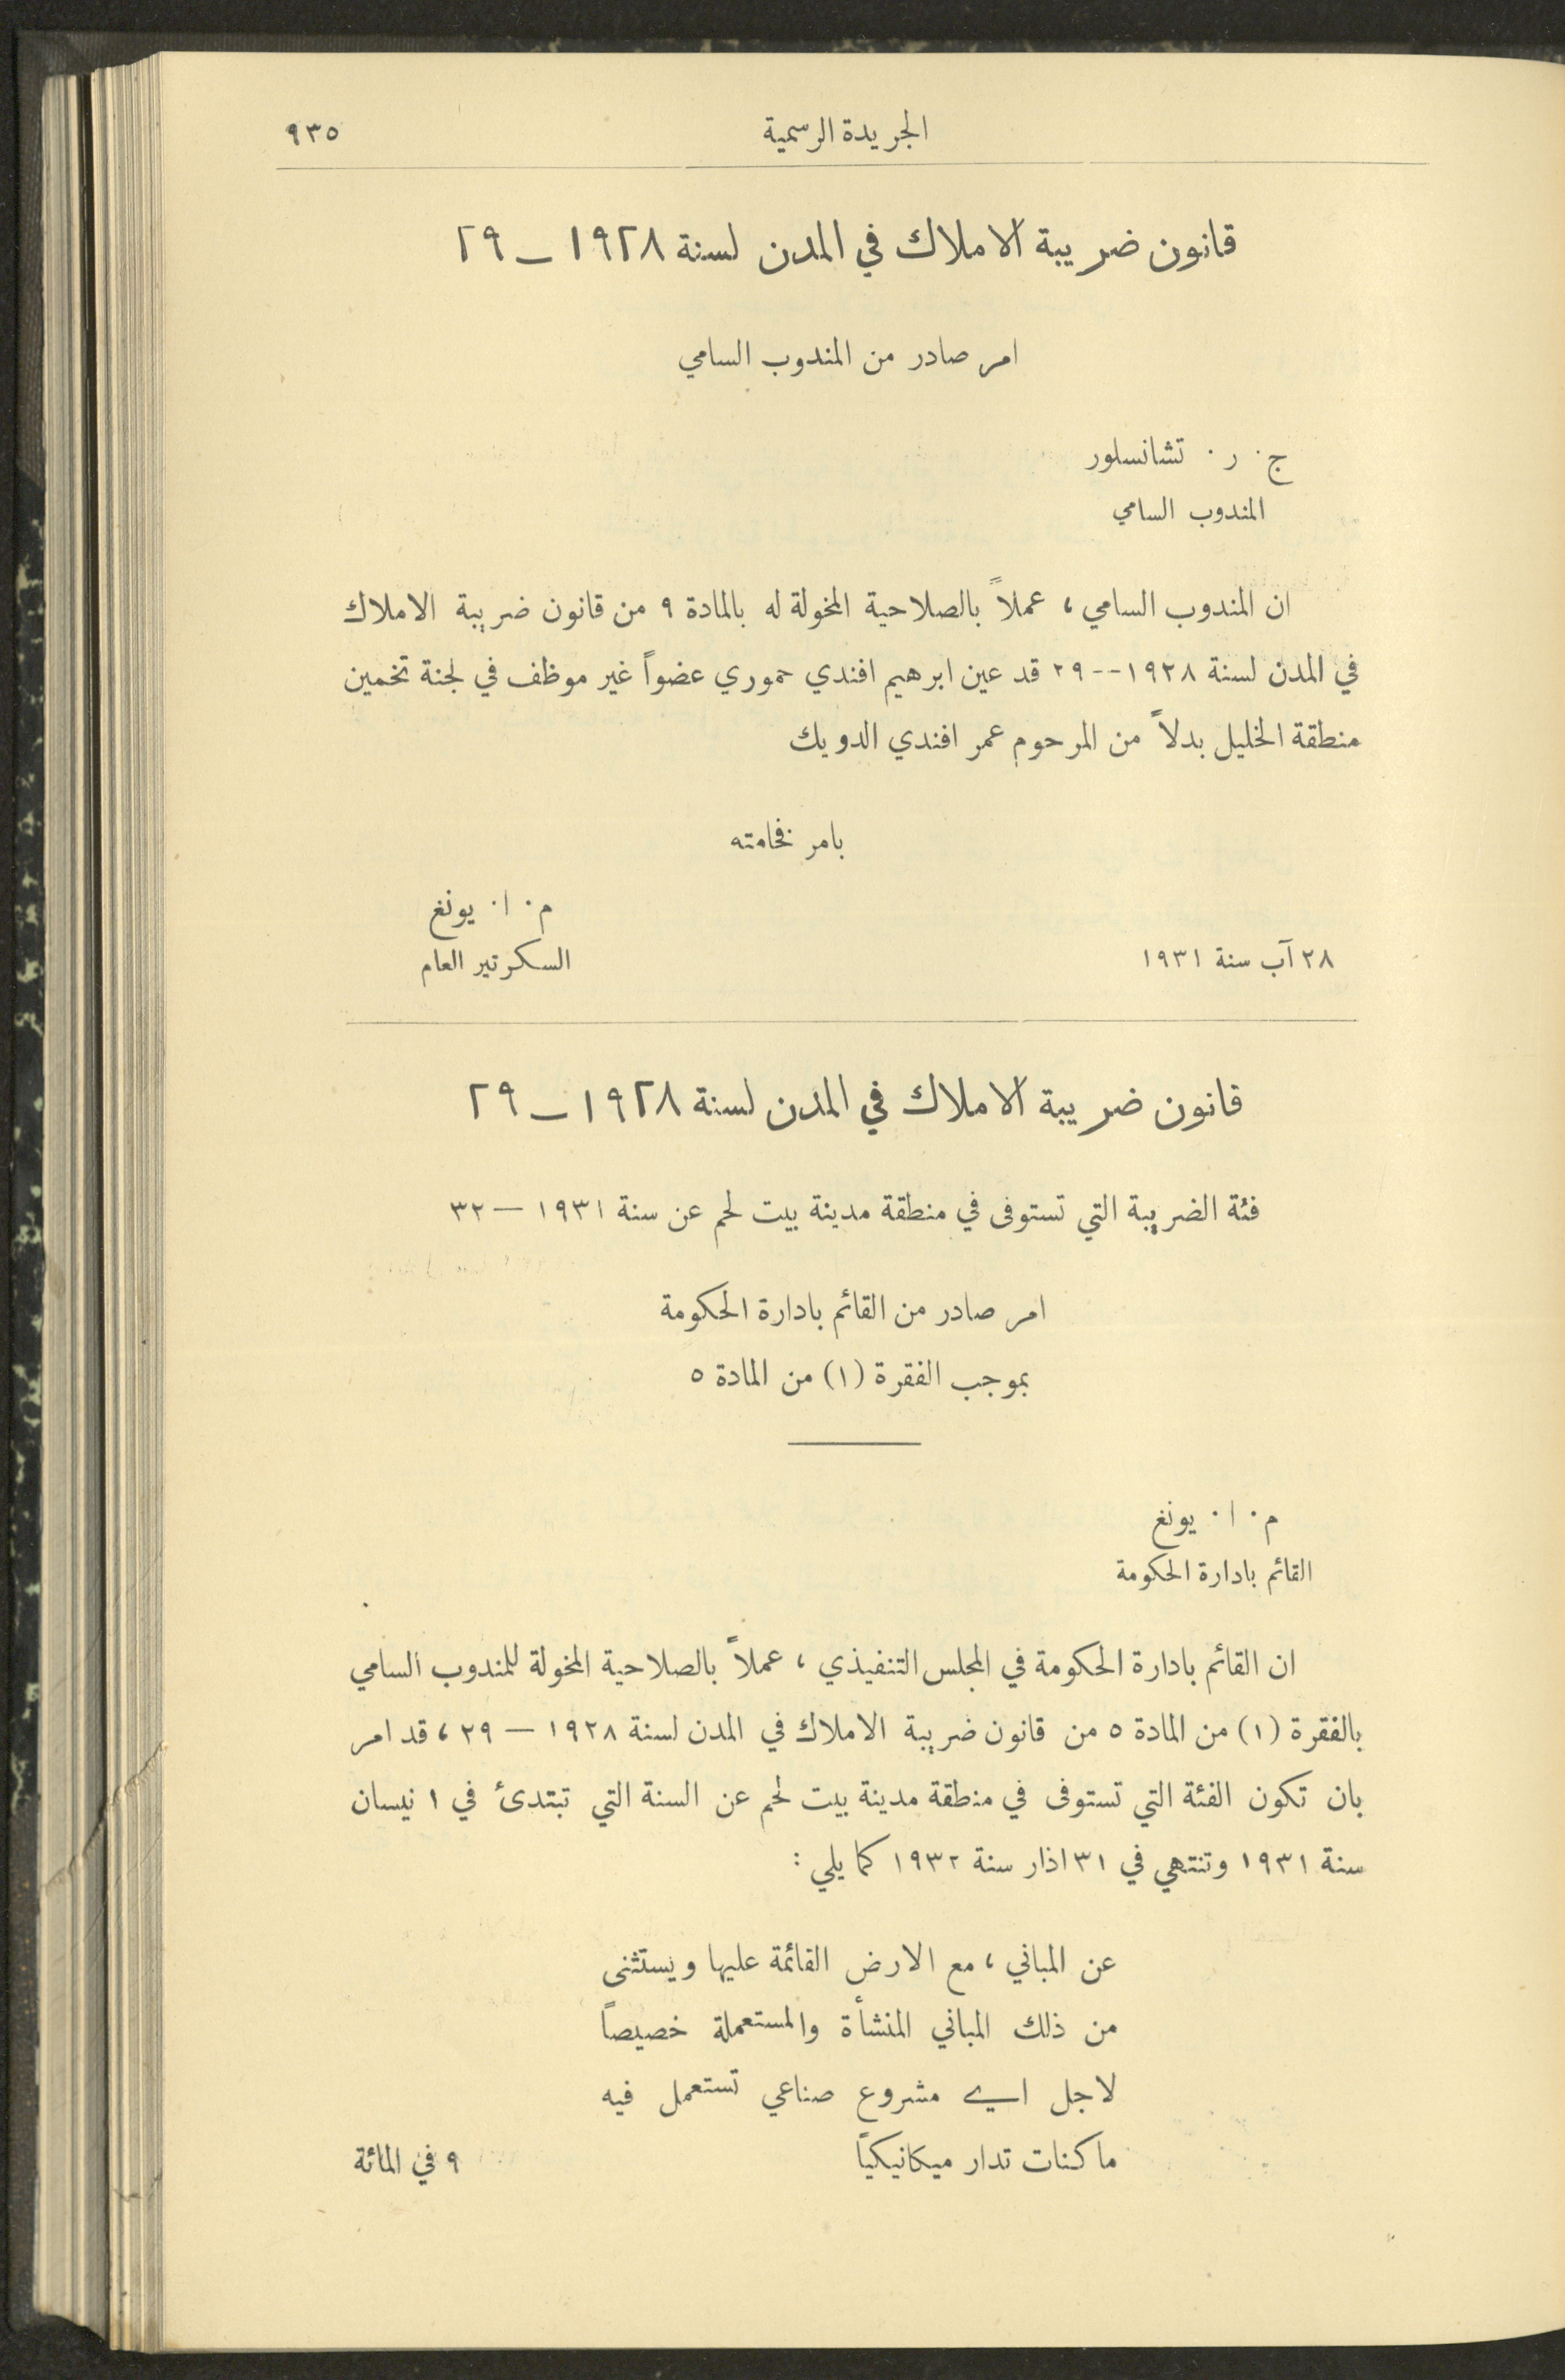 الجريدة الرسمية ٩٣٥
قانون ضريبة الاملاك في المدن لسنة ١٩٢٨ – ٢٩
امر صادر من المندوب السامي
ج. ر. تشانسلور
المندوب السامي
ان المندوب السامي ، عملاً بالصلاحية المخولة له بالمادة ٩ من قانون ضريبة الاملاك
في المدن لسنة ١٩٢٨--٢٩ قد عين ابرهيم افندي حموري عضواً غير موظف في لجنة تخمين
منطقة الخليل بدلاً من المرحوم عمر افندي الدويك
بامر فخامته
م. ا. يونغ
٢٨ آب سنة ١٩٣١ السكرتير العام
قانون ضريبة الاملاك في المدن لسنة ١٩٢٨ – ٢٩
فئة الضريبة التي تستوفى في منطقة مدينة بيت لحم عن سنة ١٩٣١ — ٣٢
امر صادر من القائم بادارة الحكومة
بموجب الفقرة (١) من المادة ٥
م. ا. يونغ
القائم بادارة الحكومة
ان القائم بادارة الحكومة في المجلس التنفيذي ، عملاً بالصلاحية المخولة للمندوب السامي
بالفقرة (١) من المادة ٥ من قانون ضريبة الاملاك في المدن لسنة ١٩٢٨ — ٢٩ ، قد امر
بان تكون الفئة التي تستوفى في منطقة مدينة بيت لحم عن السنة التي تبتدئ في ١ نيسان
سنة ١٩٣١ وتنتهي في ٣١ اذار سنة ١٩٣٢ كما يلي :
عن المباني ، مع الارض القائمة عليها ويستثنى
من ذلك المباني المنشأة والمستعملة خصيصاً
لاجل اي مشروع صناعي تستعمل فيه
ماكنات تدار ميكانيكياً ٩ في المائة